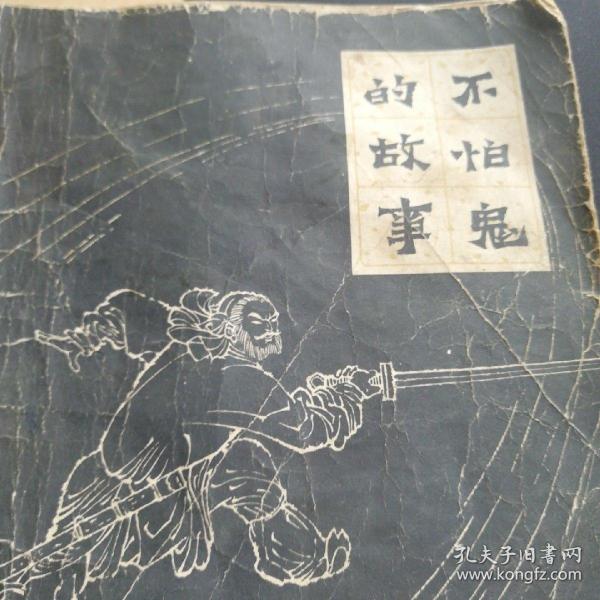 不怕鬼
的故事
孔夫子旧书网
www.kongfz.com